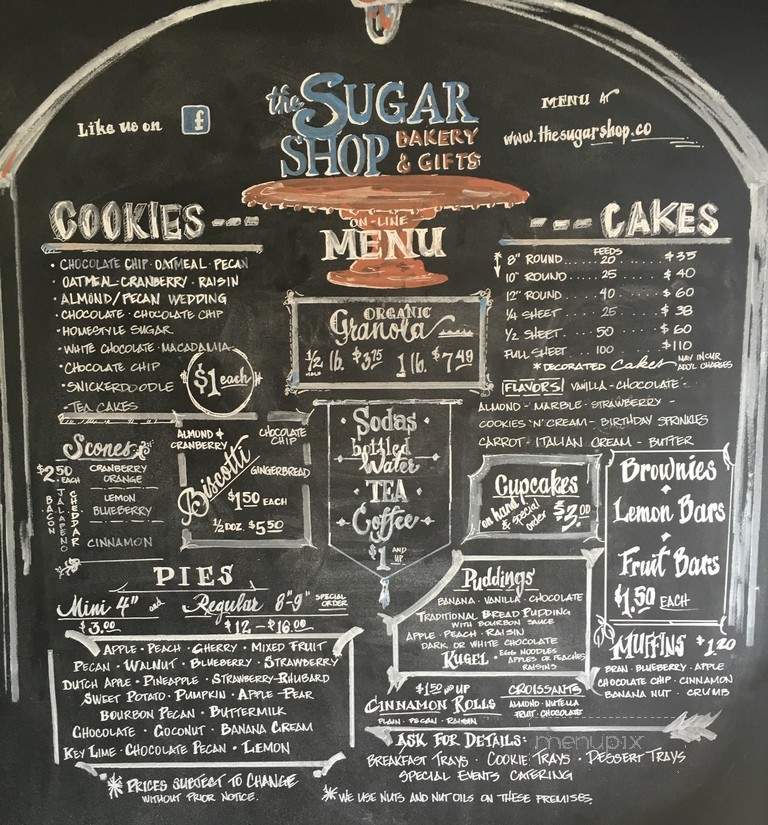 Like us on f
the SUGAR SHOP BAKERY & GIFTS
MENU AT
www.thesugarshop.co
ON-LINE
MENU
COOKIES ---
• CHOCOLATE CHIP · OATMEAL · PECAN
• OATMEAL-CRANBERRY · RAISIN
• ALMOND/PECAN WEDDING
• CHOCOLATE · CHOCOLATE CHIP
• HOMESTYLE SUGAR
• WHITE CHOCOLATE · MACADAMIA
• CHOCOLATE CHIP
• SNICKERDOODLE
• TEA CAKES
$1 each
ORGANIC
Granola
1/2 lb. $3.75 1 lb. $7.49
--- CAKES
FEEDS
* 8" ROUND.... 20 ..... $35
10" ROUND... 25 ..... $40
12" ROUND 40 ..... $60
1/4 SHEET 25 ..... $38
1/2 SHEET 50 ..... $60
FULL SHEET 100 ..... $110
* DECORATED Cakes MAY INCUR ADD'L CHARGES
FLAVORS/ VANILLA - CHOCOLATE -
ALMOND - MARBLE - STRAWBERRY -
COOKIES 'N' CREAM - BIRTHDAY SPRINKLES
CARROT - ITALIAN CREAM - BUTTER
Scones
$2.50 EACH
CRANBERRY ORANGE
LEMON BLUEBERRY
CINNAMON
BACON JALAPENO CHEDDAR
ALMOND & CRANBERRY
CHOCOLATE CHIP
Biscotti
GINGERBREAD
$1.50 EACH
1/2 DOZ. $5.50
• Sodas •
bottled Water
• TEA •
Coffee
$1 AND UP
Cupcakes
on hand & special order $3.00
Brownies
+
Lemon Bars
+
Fruit Bars
$1.50 EACH
PIES
Mini 4" and Regular 8"-9" SPECIAL ORDER
$3.00 $12 - $16.00
APPLE · PEACH · CHERRY · MIXED FRUIT
PECAN · WALNUT · BLUEBERRY · STRAWBERRY
DUTCH APPLE · PINEAPPLE · STRAWBERRY-RHUBARB
SWEET POTATO · PUMPKIN · APPLE-PEAR
BOURBON PECAN · BUTTERMILK
CHOCOLATE · COCONUT · BANANA CREAM
KEY LIME · CHOCOLATE PECAN · LEMON
Puddings
BANANA · VANILLA · CHOCOLATE
TRADITIONAL BREAD PUDDING
WITH BOURBON SAUCE
APPLE · PEACH · RAISIN
DARK OR WHITE CHOCOLATE
KUGEL • EGG NOODLES
APPLES OR PEACHES
RAISINS
MUFFINS $1.20
BRAN · BLUEBERRY · APPLE
CHOCOLATE CHIP · CINNAMON
BANANA NUT · CRUMB
$1.50 AND UP
CINNAMON ROLLS
PLAIN · PECAN · RAISIN
CROISSANTS
ALMOND · NUTELLA
FRUIT · CHOCOLATE
ASK FOR DETAILS:
BREAKFAST TRAYS · COOKIE TRAYS · DESSERT TRAYS
SPECIAL EVENTS CATERING
menupix
* PRICES SUBJECT TO CHANGE
WITHOUT PRIOR NOTICE.
* WE USE NUTS AND NUT OILS ON THESE PREMISES.